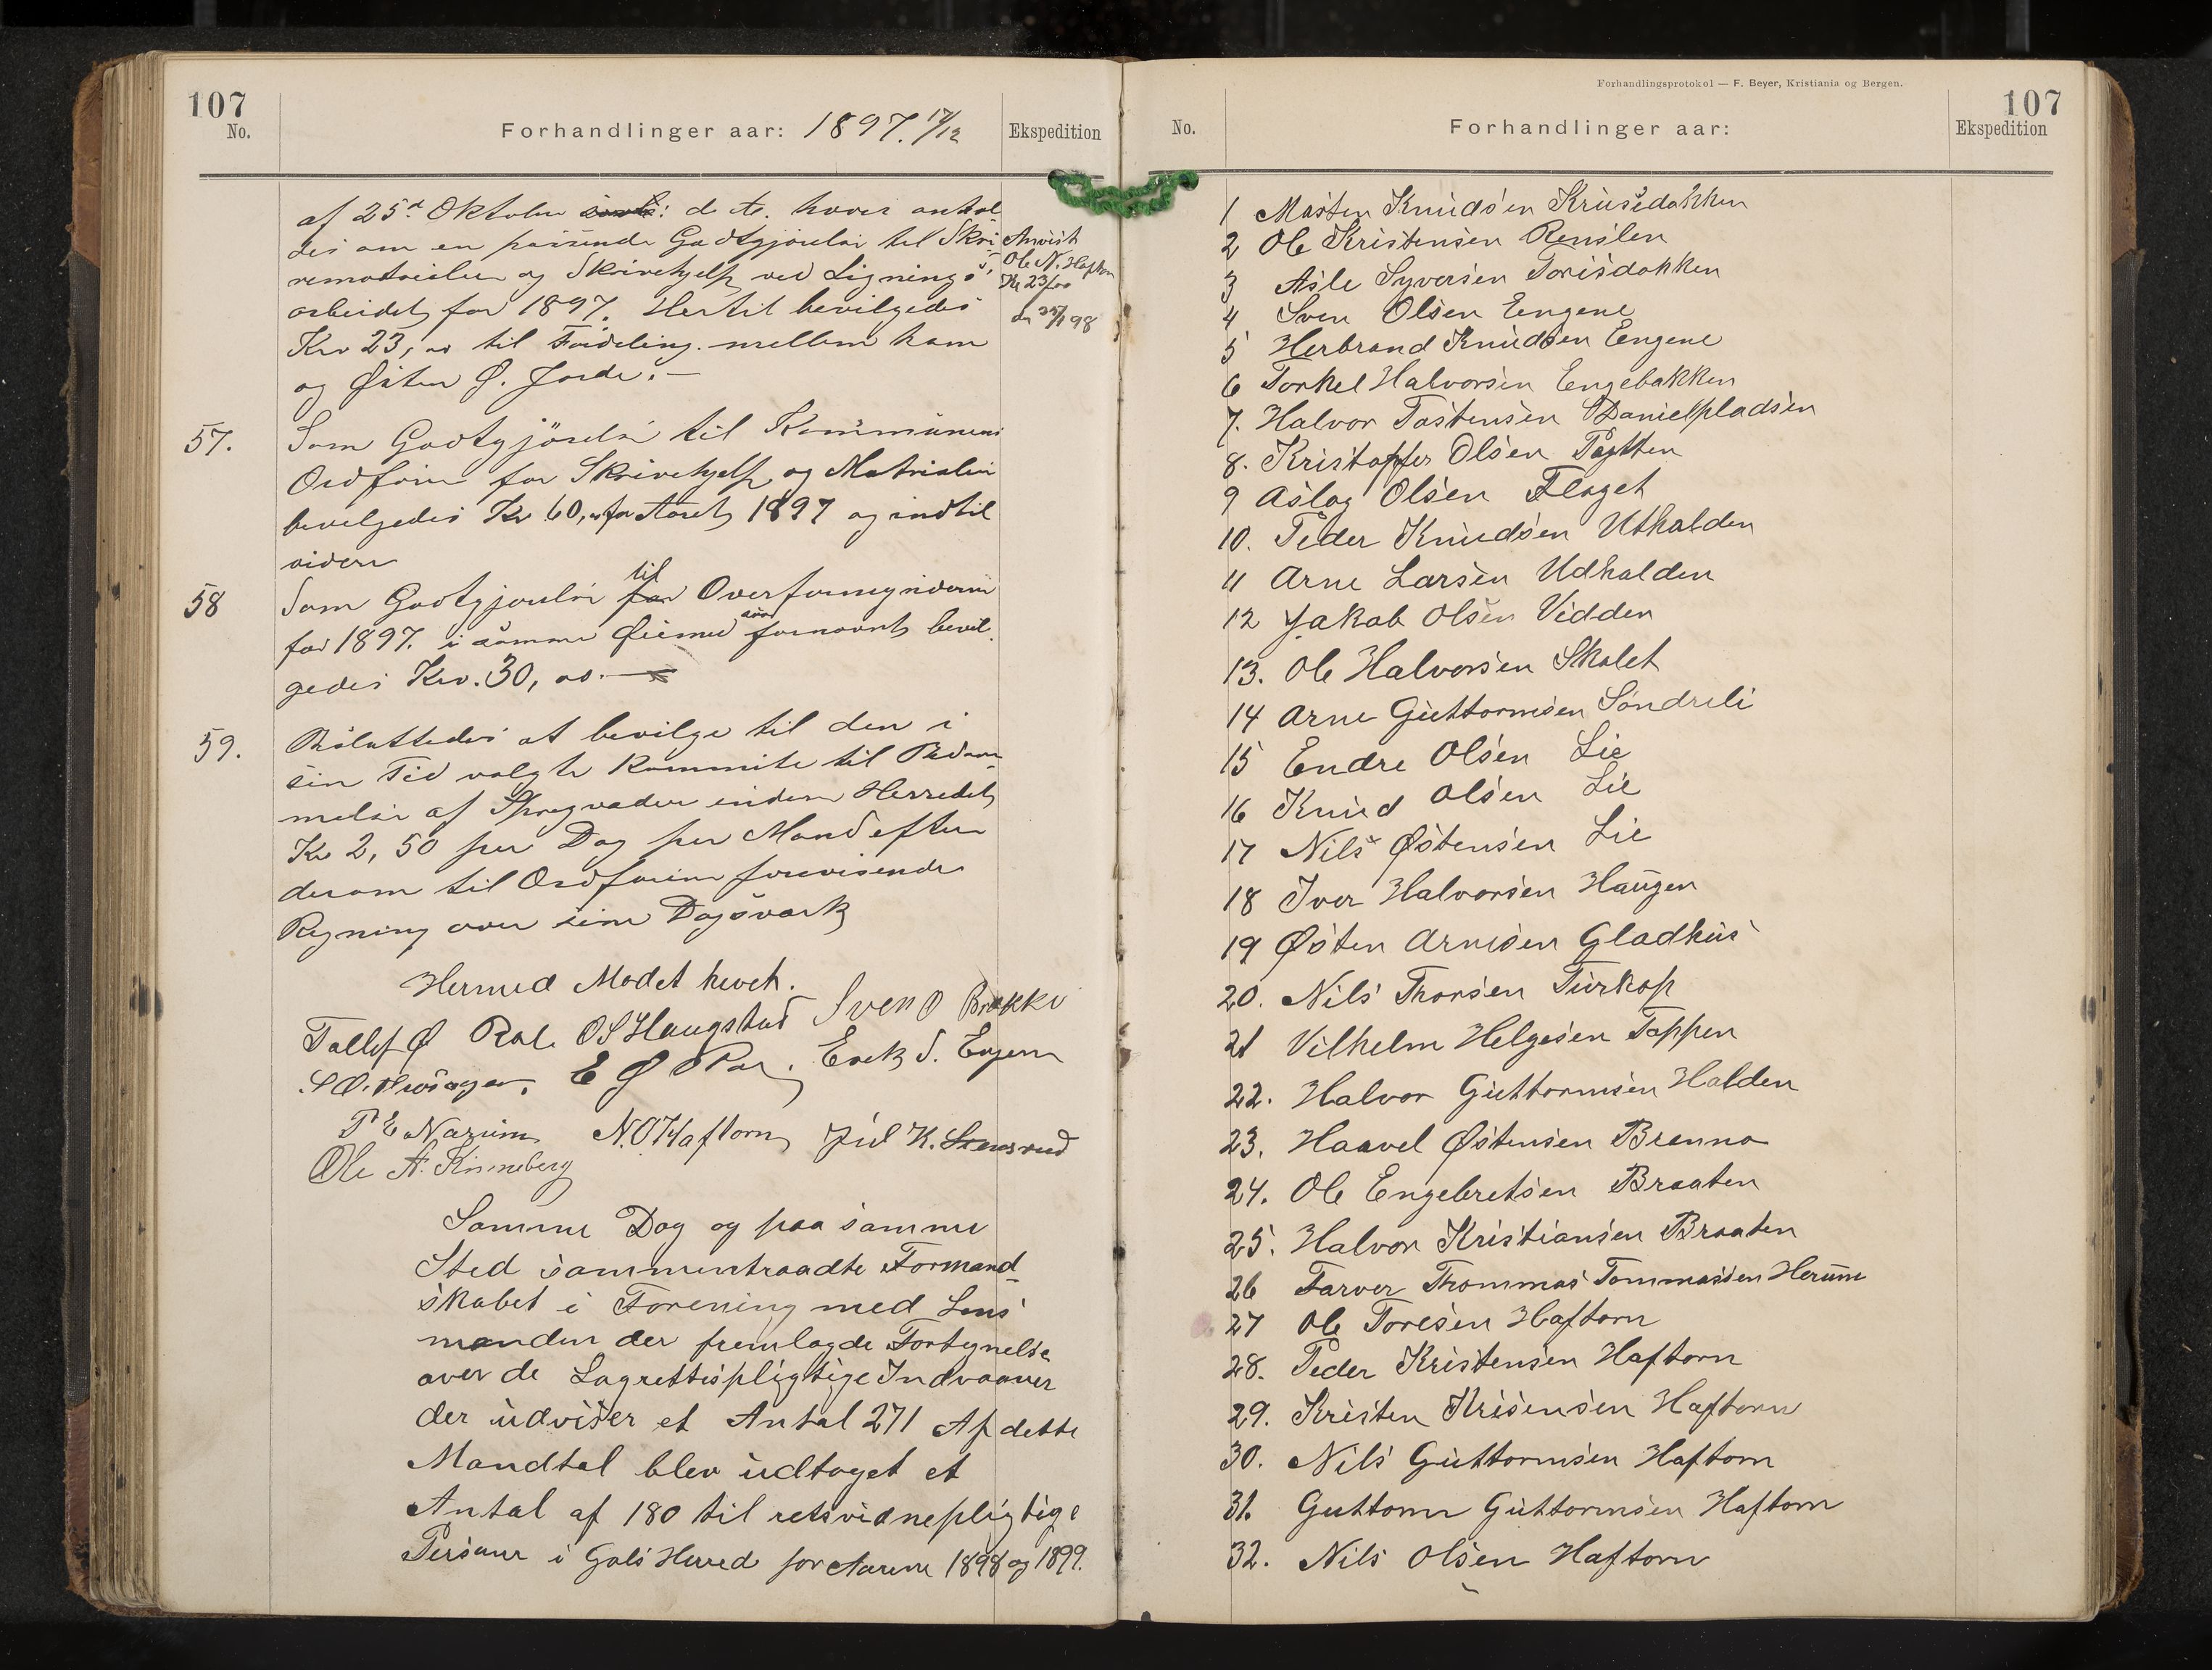 107
No.
Forhandlinger aar: 1897. 17/12
Ekspedition
af 25de Oktober d. A. hvori anhol
des om en passende Godtgjørelse til Skri
vematrialer og Skrivehjelp ved Lignings
arbeidet for 1897. Hertil bevilgedes
Kr 23,00 til Fordeling mellem ham
og Østen Ø. Jorde. —
Anvist
Ole N. Haftorn
Kr 23,00
98
57. Som Godtgjörelse til Kommunens
Ordförer for Skrivehjelp og Matrialer
bevilgedes Kr 60,00 for Aaret 1897 og indtil
videre
58 Som Godtgjörelse til Overformynderne
for 1897. i samme Øiemed som fornævnt bevil
gedes Kr. 30,00. —
59. Besluttedes at bevilge til den i
sin Tid valgte Kommite til Bedöm
melse af Sprogvæder inden Herredet
Kr 2,50 per Dag per Mand efter
derom til Ordføreren forevisende
Regning over sine Dagsværk
Hermed Mødet hevet.
Tollef Ø Rol. O S Haugstad Sven O Brække
E Ø Ro. Erik S. Engene
P E Narum N. O Haftorn Jul K. Stensrud
Ole A. Kinneberg
Samme Dag og paa samme
Sted sammentraadte Formand
skabet i Forening med Lens
manden der fremlagde Fortegnelse
over de Lagrettespligtige Indvaaner
der udviser et Antal 271 Af dette
Mandtal blev udtaget et
Antal af 180 til retsvidnepligtige
Persaner i Gols Herred for Aarene 1898 og 1899.
Forhandlingsprotokol — F. Beyer, Kristiania og Bergen.
107
No.
Forhandlinger aar:
Ekspedition
1 Masten Knudsen Krusedokken
2 Ole Kristensen Renslen
3 Asle Syversen Torisdokken
4 Sven Olsen Engene
5 Herbrand Knudsen Engene
6 Torkel Halvorsen Engebakken
7. Halvor Tostensen Danielpladsen
8. Kristoffer Olsen Pøttten
9 Aslag Olsen Flaget
10. Peder Knudsen Uthalden
11 Arne Larsen Udhalden
12 Jakob Olsen Vidden
13. Ole Halvorsen Skolet
14 Arne Guttormsen Söndreli
15 Endre Olsen Lie
16 Knud Olsen Lie
17 Nils Østensen Lie
18 Iver Halvorsen Haugen
19 Østen Arnesen Gladhus
20. Nils Thorsen Turkop
21 Vilhelm Helgesen Toppen
22. Halvor Guttormsen Halden
23. Haavel Østensen Brenno
24. Ole Engebretsen Braaten
25. Halvor Kristiansen Braaten
26 Farver Thommas Tommassen Herum
27 Ole Toresen Haftorn
28. Peder Kristensen Haftorn
29. Kristen Krisensen Haftorn
30. Nils Guttormsen Haftorn
31. Guttorm Guttormsen Haftorn
32. Nils Olsen Haftorn